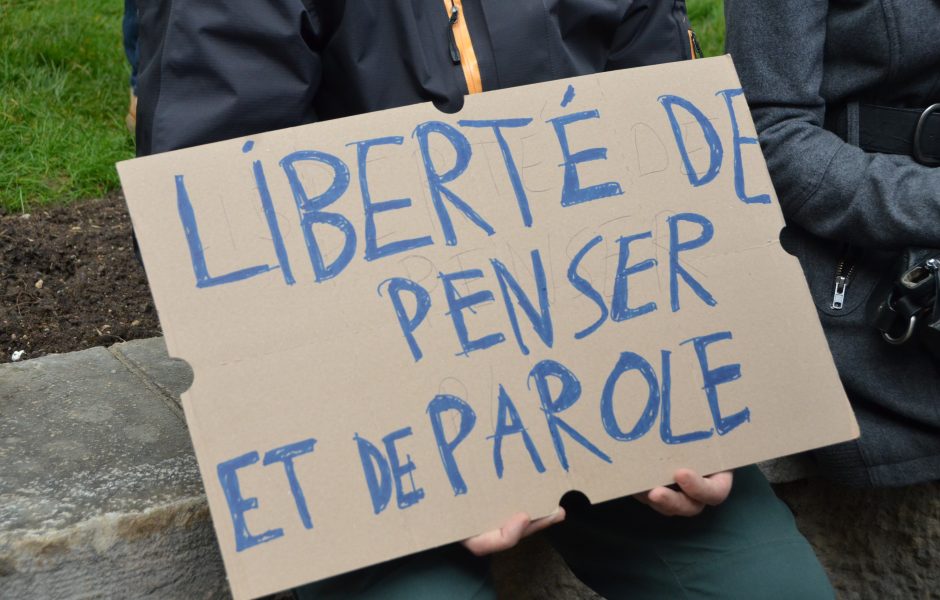 LIBERTÉ DE
PENSER
ET DE PAROLE